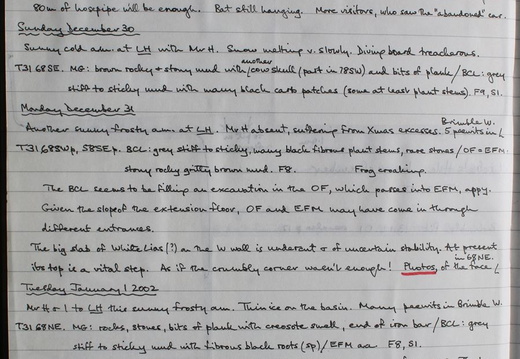 80m of hosepipe will be enough. But still hanging. More visitors, who saw the "abandoned" car.
Sunday December 30
Sunny cold a.m. at LH with Mr H. Snow melting v. slowly. Diving board treacherous.
another
T31 68SE. MG: brown rocky + stony mud with / cow skull (part in 78SW) and bits of plank / BCL: grey
stiff to sticky mud with many black carb patches (some at least plant stems). F9, S1.
Monday December 31
Brimble W.
Another sunny frosty a.m. at LH. Mr H absent, suffering from Xmas excesses. 5 peewits in /
T31 68SWp, 58SEp. BCL: grey stiff to sticky, many black fibrous plant stems, rare stones / OF = EFM:
stony rocky gritty brown mud. F8. Frog croaking.
The BCL seems to be filling an excavation in the OF, which passes into EFM, appy.
Given the slope of the extension floor, OF and EFM may have come in through
different entrances.
The big slab of White Lias (?) on the W wall is undercut + of uncertain stability. At present
in 68NE.
its top is a vital step. As if the crumbly corner wasn't enough! Photos, of the face /
Tuesday January 1 2002
Mr H + I to LH this sunny frosty am. Thin ice on the basin. Many peewits in Brimble W.
T31 68NE. MG: rocks, stones, bits of plank with creosote smell, end of iron bar / BCL: grey
stiff to sticky mud with fibrous black roots (sp) / EFM aa F8, S1.